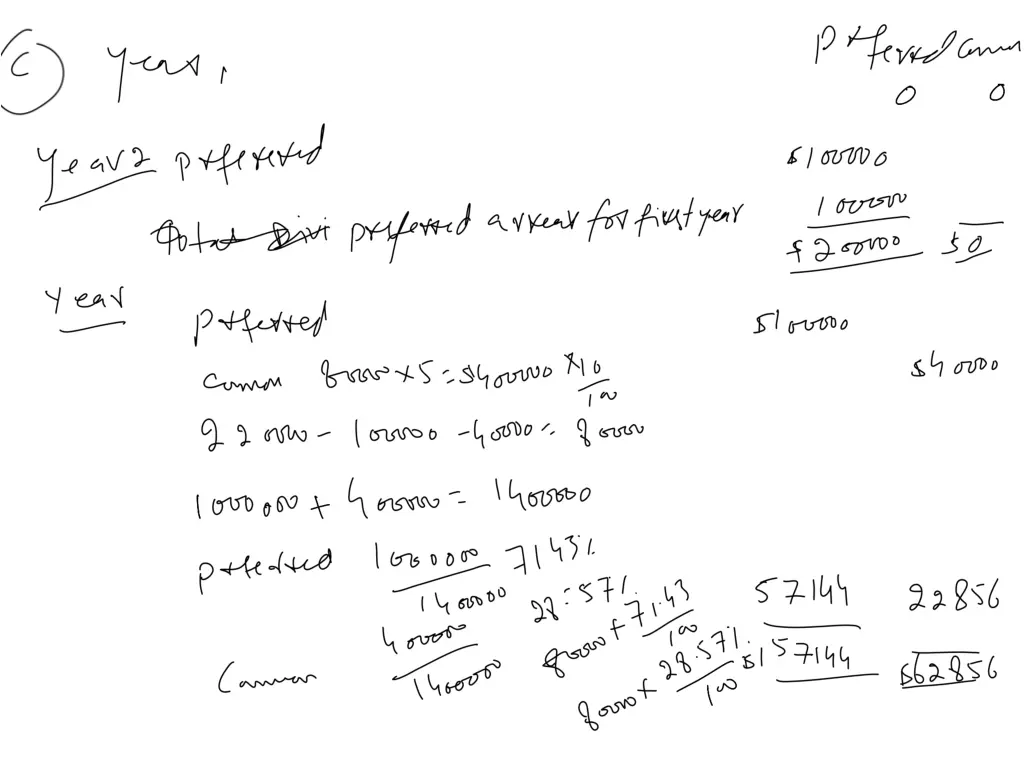 c) Year 1
Preferred Common
0 0
Year 2 preferred $100000
preferred arrear for first year 100000
$200000 $0
Year
Preferred $100000
Common 80000 × 5 = $400000 × 10/100 $40000
220000 - 100000 - 40000 = 80000
1000000 + 400000 = 1400000
preferred 1000000/1400000 71.43%
28.57%
80000 × 71.43/100 57144 22856
Common 400000/1400000
80000 × 28.57%/100 $157144 $62856